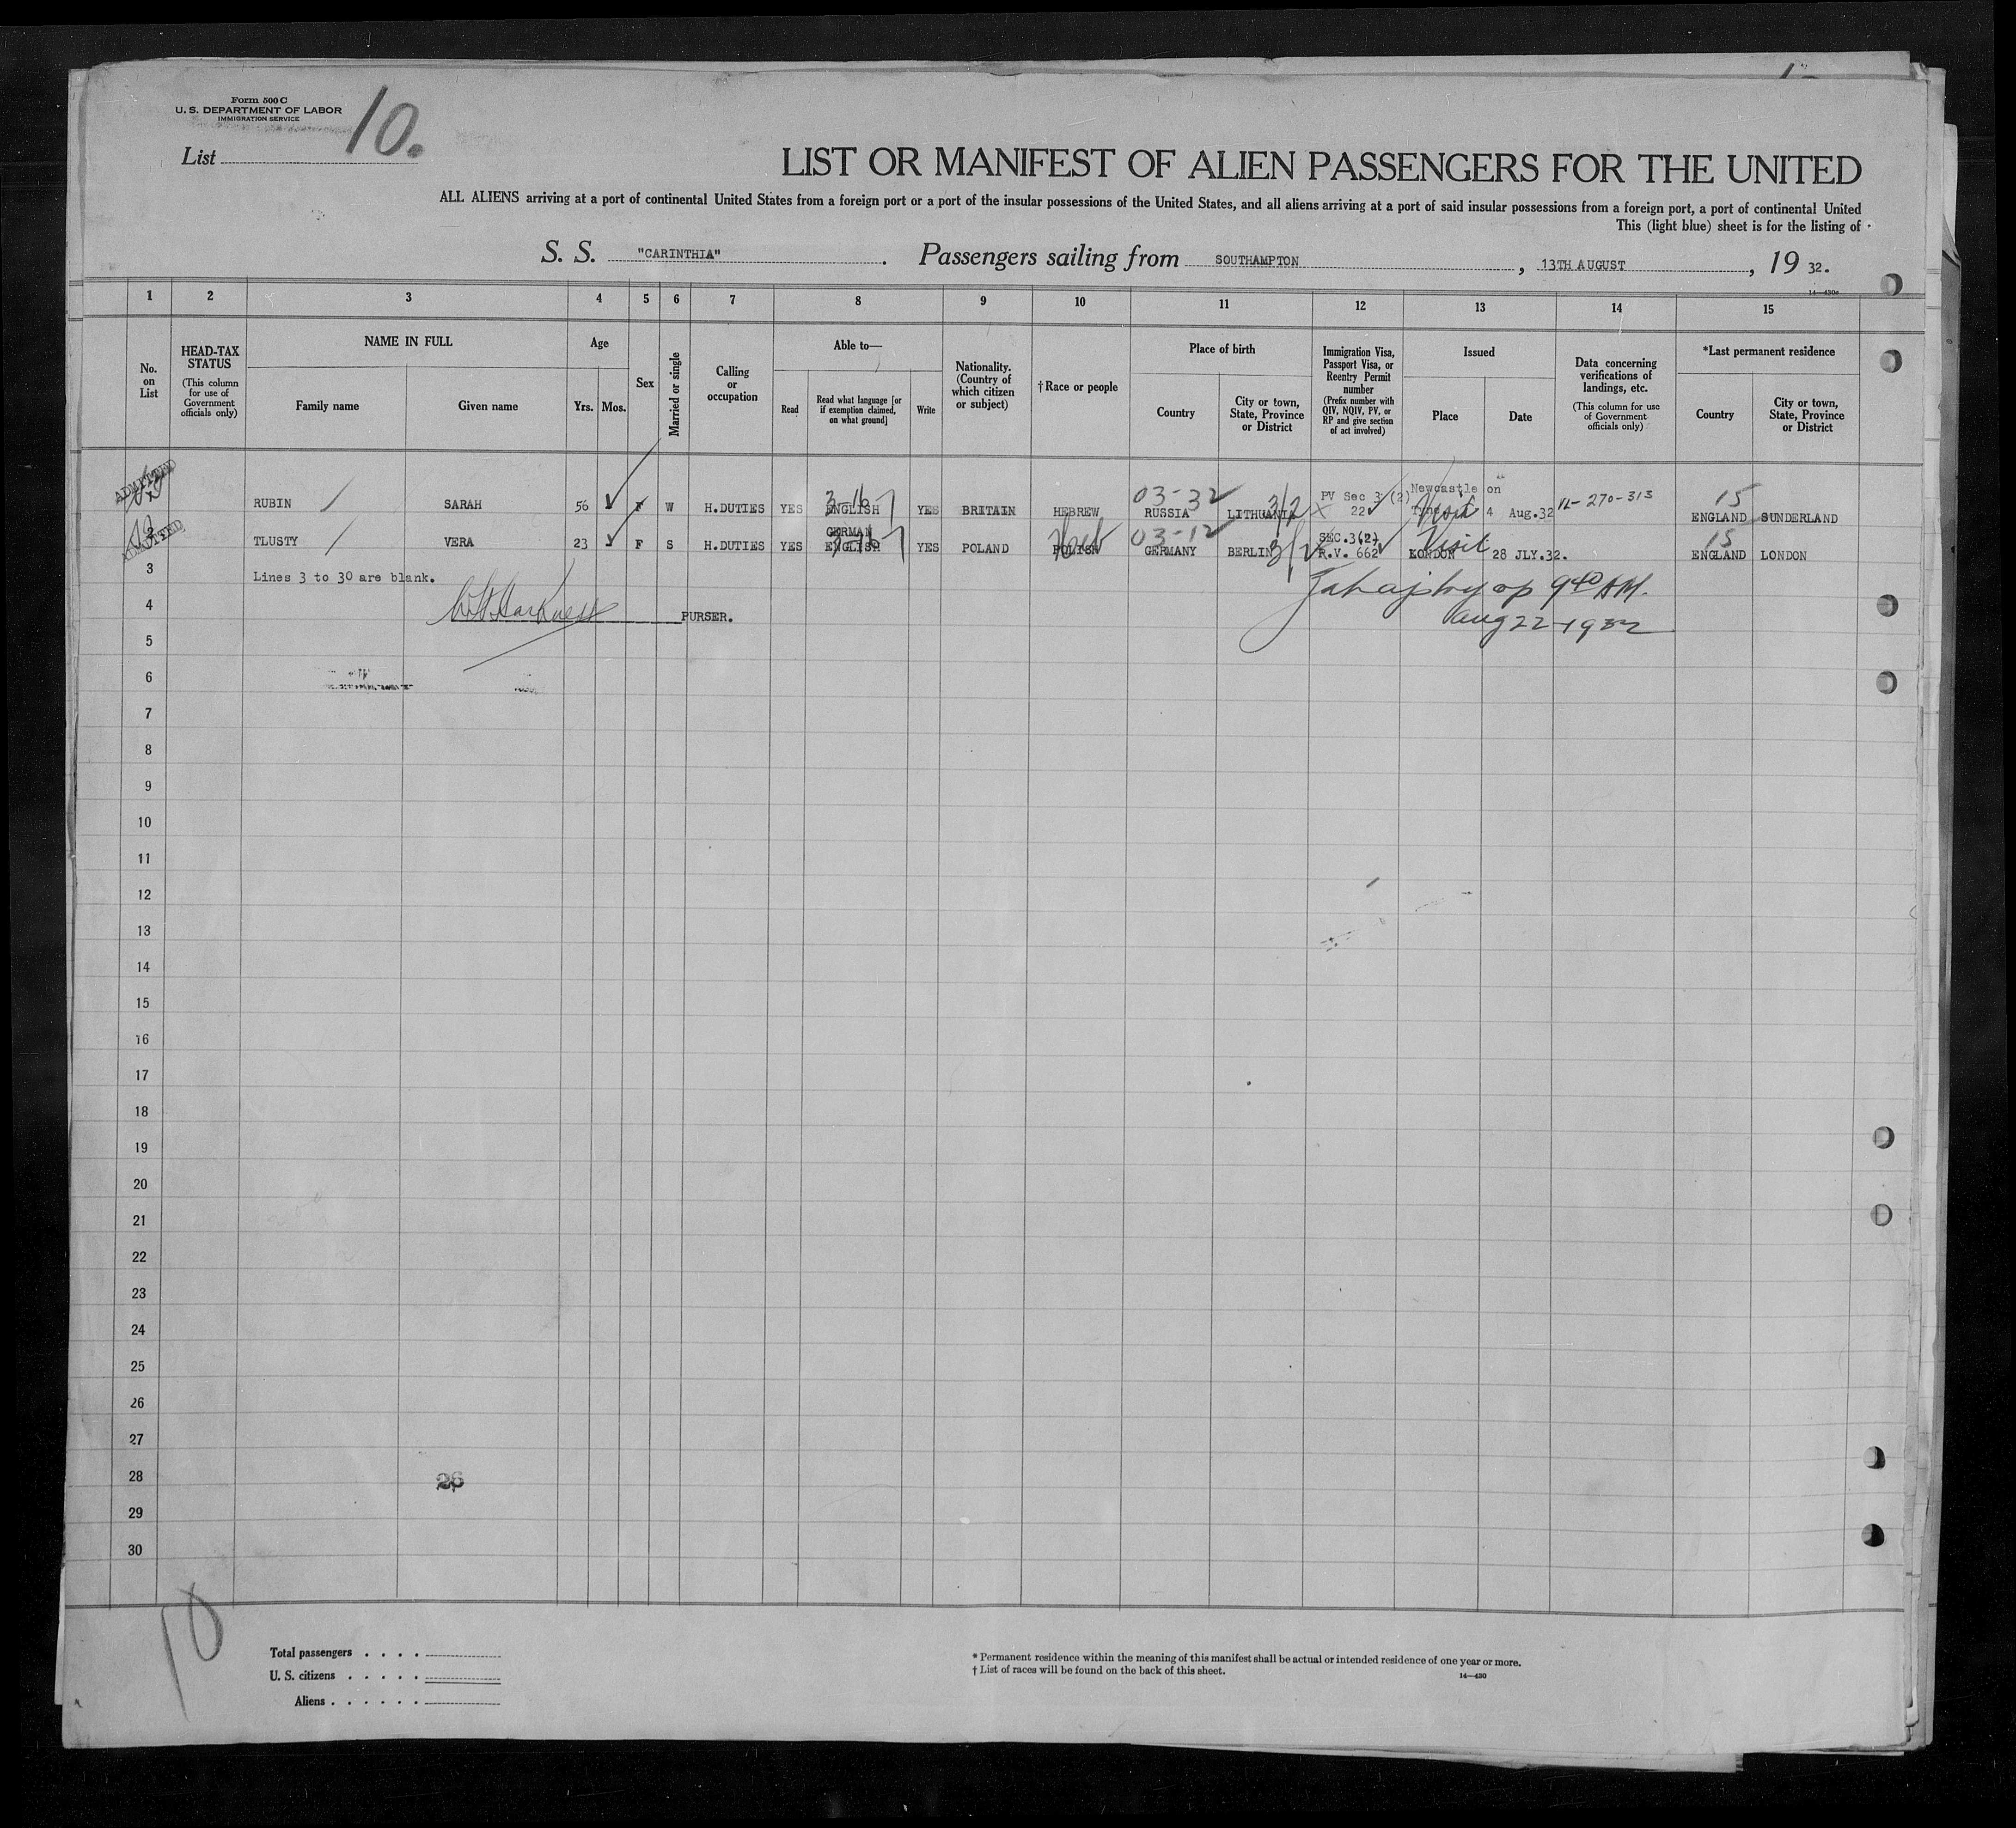 Form 500 C
U. S. DEPARTMENT OF LABOR
IMMIGRATION SERVICE
List 10.
LIST OR MANIFEST OF ALIEN PASSENGERS FOR THE UNITED
ALL ALIENS arriving at a port of continental United States from a foreign port or a port of the insular possessions of the United States, and all aliens arriving at a port of said insular possessions from a foreign port, a port of continental United
This (light blue) sheet is for the listing of
S. S. "CARINTHIA". Passengers sailing from SOUTHAMPTON, 13TH AUGUST, 19 32.
14—430c
1 2 3 4 5 6 7 8 9 10 11 12 13 14 15
No. on List
HEAD-TAX STATUS
(This column for use of Government officials only)
NAME IN FULL
Family name Given name
Age
Yrs. Mos.
Sex
Married or single
Calling or occupation
Able to—
Read
Read what language [or if exemption claimed, on what ground]
Write
Nationality. (Country of which citizen or subject)
†Race or people
Place of birth
Country
City or town, State, Province or District
Immigration Visa, Passport Visa, or Reentry Permit number
(Prefix number with QIV, NQIV, PV, or RP and give section of act involved)
Issued
Place Date
Data concerning verifications of landings, etc.
(This column for use of Government officials only)
*Last permanent residence
Country
City or town, State, Province or District
ADMITTED
3-16 03-32 3/2 PV Sec 3 (2) Newcastle on 15
RUBIN SARAH 56 F W H.DUTIES YES ENGLISH YES BRITAIN HEBREW RUSSIA LITHUANIA 22 Tyne Visit 4 Aug.32 -270-313 ENGLAND SUNDERLAND
ADMITTED
GERMAN Heb 03-12 3/2 SEC.3(2) Visit 15
2 TLUSTY VERA 23 F S H.DUTIES YES ENGLISH YES POLAND POLISH GERMANY BERLIN 662 LONDON 28 JLY.32. ENGLAND LONDON
3 Lines 3 to 30 are blank.
9 40 AM.
4 PURSER.
Aug 22 - 1932
5
6
7
8
9
10
11
12
13
14
15
16
17
18
19
20
21
22
23
24
25
26
27
28 26
29
30
10
Total passengers
U. S. citizens
Aliens
* Permanent residence within the meaning of this manifest shall be actual or intended residence of one year or more.
† List of races will be found on the back of this sheet.
14—430